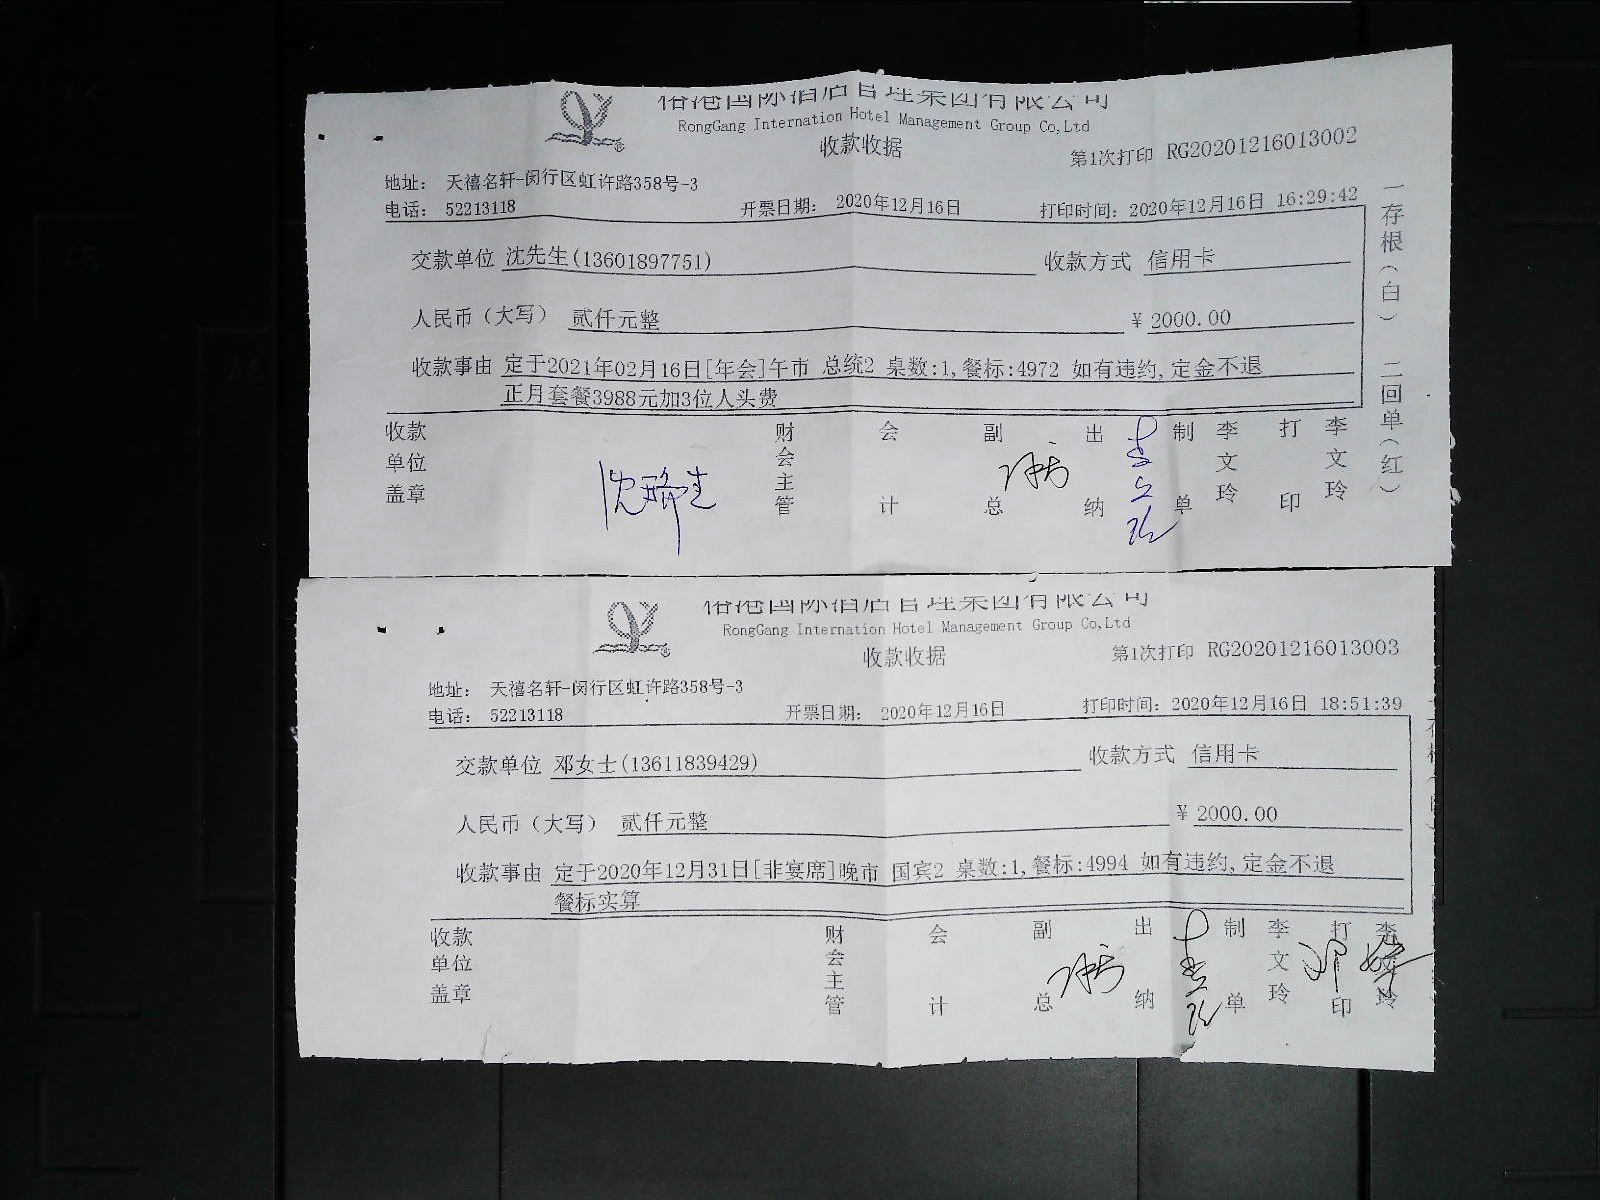 裕港国际酒店管理集团有限公司
RongGang Internation Hotel Management Group Co,Ltd
收款收据
第1次打印 RG20201216013002
地址: 天禧名轩-闵行区虹许路358号-3
电话: 52213118 开票日期: 2020年12月16日 打印时间: 2020年12月16日 16:29:42
交款单位 沈先生(13601897751) 收款方式 信用卡
人民币(大写) 贰仟元整 ¥ 2000.00
收款事由 定于2021年02月16日[年会]午市 总统2 桌数:1,餐标:4972 如有违约,定金不退
正月套餐3988元加3位人头费
收款单位盖章 财会主管 会计 副总 出纳 制单 李文玲 打印 李文玲
一存根(白) 二回单(红)
裕港国际酒店管理集团有限公司
RongGang Internation Hotel Management Group Co,Ltd
收款收据
第1次打印 RG20201216013003
地址: 天禧名轩-闵行区虹许路358号-3
电话: 52213118 开票日期: 2020年12月16日 打印时间: 2020年12月16日 18:51:39
交款单位 邓女士(13611839429) 收款方式 信用卡
人民币(大写) 贰仟元整 ¥ 2000.00
收款事由 定于2020年12月31日[非宴席]晚市 国宾2 桌数:1,餐标:4994 如有违约,定金不退
餐标实算
收款单位盖章 财会主管 会计 副总 出纳 制单 李文玲 打印 李文玲